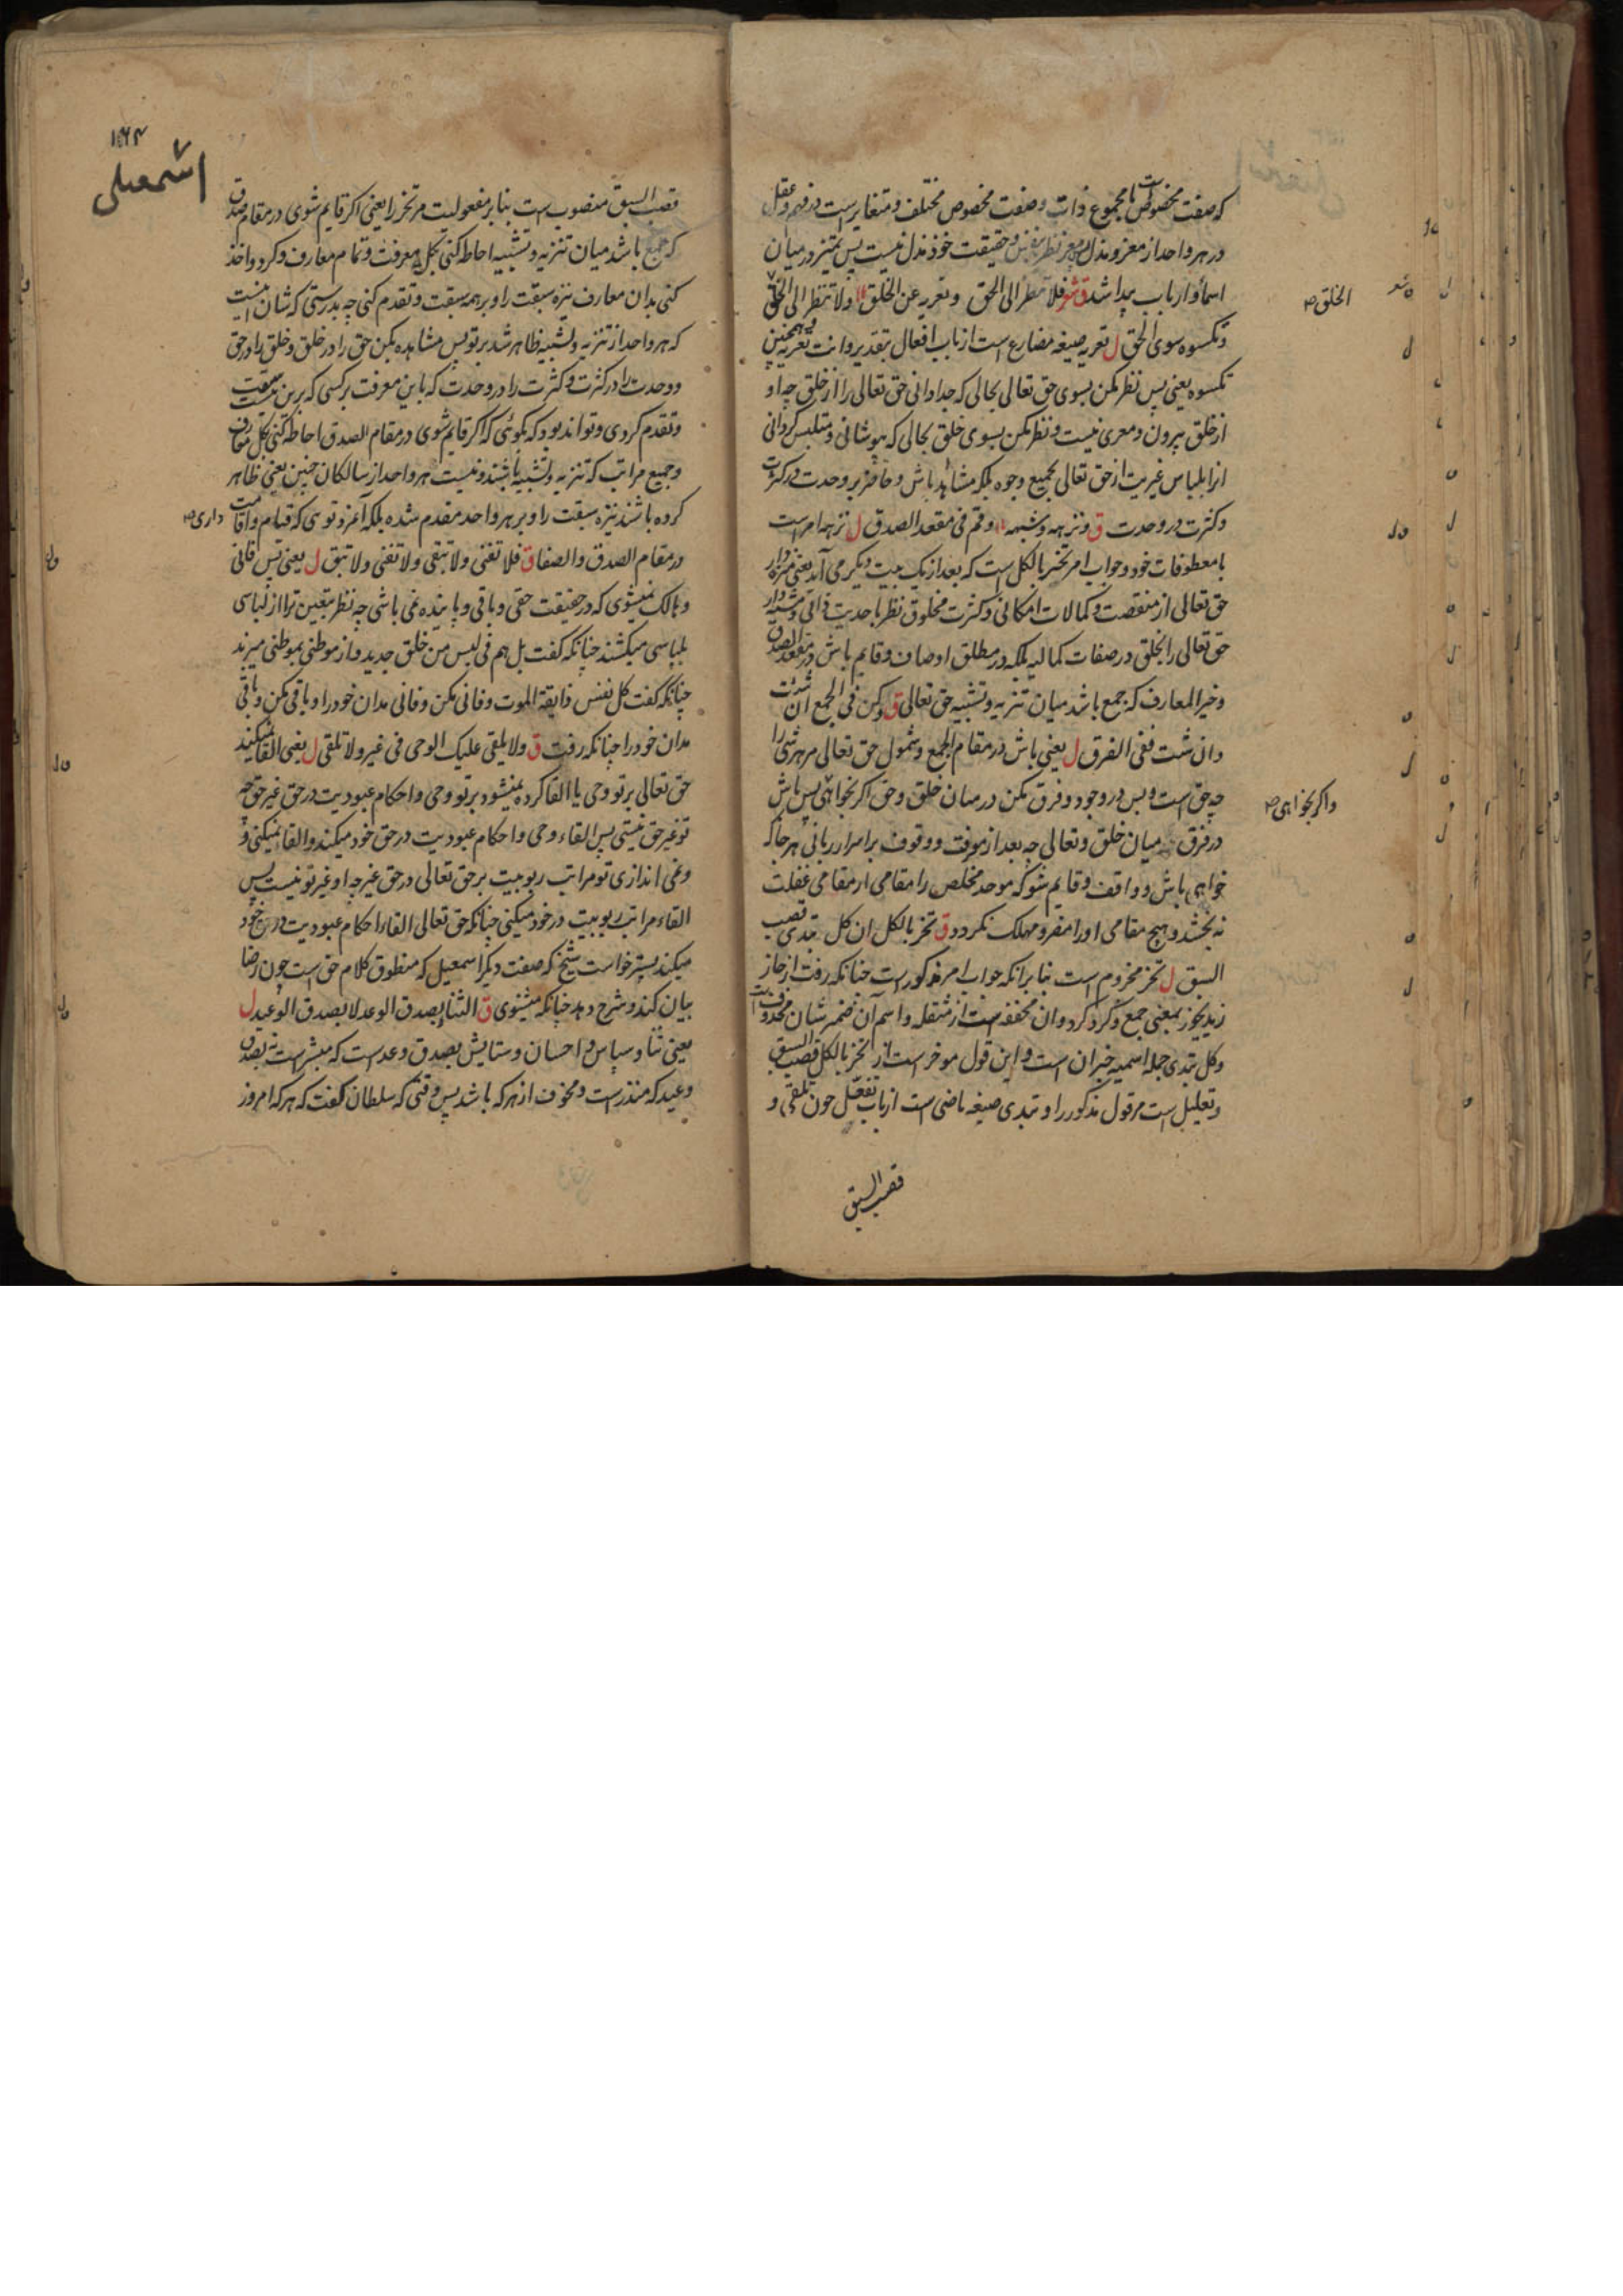 که صفت مخصوص است با مجموع ذات و صفت مخصوص مختلف و متغایر است در فهم و عقل
در هر واحد از معز و مذل معز نظر بنفس و حقیقت خود مذل نیست پس تمیز در میان
اسما و ارباب پیدا شد ق شعر فلا تنظر الی الحق وتعریه عن الخلق ولا تنظر الی الخلق
وتکسوه سوی الحق ل تعریه صیغه مضارع است از باب افعال بتقدیر وانت تعریه وهمچنین
تکسوه یعنی پس نظر مکن بسوی حق تعالی بحالی که جدا دانی حق تعالی را از خلق چه او
از خلق بیرون و معری نیست و نظر مکن بسوی خلق بحالی که بپوشانی و متلبس گردانی
انرا بلباس غیریت از حق تعالی بجمیع وجوه بلکه مشاهد باش و حاضر بر وحدت در کثرت
و کثرت در وحدت ق ونزهه وشبهه وقم فی مقعد الصدق ل نزهه امر است
با معطوفات خود و جواب امر تحز بالکل است که بعد از یک بیت دیگر می آید یعنی منزه دار
حق تعالی از منقصت و کمالات امکانی و کثرت مخلوق نظر باحدیت ذاتی و مشبه دار
حق تعالی را بخلق در صفات کمالیه بلکه در مطلق اوصاف و قایم باش در مقعد الصدق
و خیر المعارف که جمع باشد میان تنزیه و تشبیه حق تعالی ق وکن فی الجمع ان شئت
وان شئت ففی الفرق ل یعنی باش در مقام الجمع و شمول حق تعالی مر هر شی را
چه حق است و بس در وجود و فرق مکن در میان خلق و حق اگر بخواهی پس باش
در فرق میان خلق و تعالی چه بعد از معرفت و وقوف بر اسرار ربانی هر جا که
خواهی باش و واقف و قایم شو که موحد مخلص را مقامی از مقامی غفلت
نه بخشد و هیچ مقامی او را مضر و مهلک نگردد ق تحز بالکل ان کل تبدی قصب
السبق ل تحز مجزوم است بنا برانکه جواب امر مذکور است چنانکه رفت از حاز
زید یحوز بمعنی جمع و گرد کرد و ان مخففه است از مثقله و اسم آن ضمیر شان محذوف است
و کل تبدی جمله اسمیه خبر ان است و این قول موخر است از تحز بالکل قصب السبق
و تعلیل است مر قول مذکور را و تبدی صیغه ماضی است از باب تفعل چون تلقی و
الخلق صح
واگر بخواهی صح
قصب السبق
۱۶۴
اسمعیلی
قصب السبق منصوب است بنا بر مفعولیت مر تحز را یعنی اگر قایم شوی در مقام صدق
که جمع باشد میان تنزیه و تشبیه احاطه کنی بکل معرفت و تمام معارف و گرد و اخذ
کنی بدان معارف نیزه سبقت را و بر همه سبقت و تقدم کنی چه بدرستی که شان اینست
که هر واحد از تنزیه و تشبیه ظاهر شد بر تو پس مشاهده بکن حق را در خلق و خلق را در حق
و وحدت را در کثرت و کثرت را در وحدت که باین معرفت بر کسی که برین نیست سبقت
و تقدم کردی و تواند بود که بگوئی که اگر قایم شوی در مقام الصدق احاطه کنی بکل معارف
و جمیع مراتب که تنزیه و تشبیه باشند و نیست هر واحد از سالکان چنین یعنی ظاهر
کرده باشند نیزه سبقت را و بر هر واحد مقدم شده بلکه آن مزد توسی که قیام و اقامت
داری صح
در مقام الصدق والصفا ق فلا تفنی ولا تبقی ولا تفنی ولا تبق ل یعنی پس فانی
و هالک نمیشوی که در حقیقت حقی و باقی و پاینده نمی باشی چه نظر بتعین ترا از لباسی
بلباسی میکشند چنانکه گفت بل هم فی لبس من خلق جدید و از موطنی بموطنی میبرند
چنانکه گفت کل نفس ذایقة الموت و فانی مکن و فانی مدان خود را و باقی مکن و باقی
مدان خود را چنانکه رفت ق ولا یلقی علیک الوحی فی غیر ولا تلقی ل یعنی القا نمیکند
حق تعالی بر تو وحی یا القا کرده نمیشود بر تو وحی و احکام عبودیت در حق غیر حق چه
تو غیر حق نیستی پس القاء وحی و احکام عبودیت در حق خود میکند و القا نمیکنی تو
و نمی اندازی تو مراتب ربوبیت بر حق تعالی در حق غیر چه او غیر تو نیست پس
القاء مراتب ربوبیت در خود میکنی چنانکه حق تعالی القاء احکام عبودیت در حق خود
میکند پستر خواست شیخ که صفت دیگر اسمعیل که منطوق کلام حق است چون رضا
بیان کند و شرح دهد چنانکه میشنوی ق الثناء بصدق الوعد لا بصدق الوعید ل
یعنی ثنا و سپاس و احسان و ستایش بصدق وعد است که مبشر است نه بصدق
وعید که منذر است و مخوف از هر که باشد پس وقتی که سلطان گفت که هر که امروز